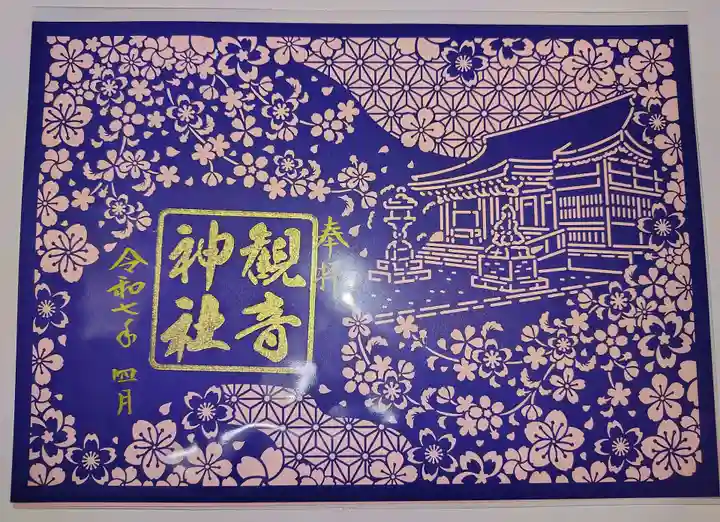 奉拝
観音
神社
令和七年 四月